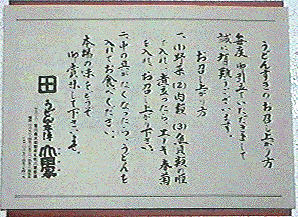 うどんすきのお召し上がり方
毎度御引立ていただきまして
誠に有難うございます。
お召し上がり方
一、小野菜(2)肉類(3)魚貝類の順
に入れ、煮立ったら、エノキ、春菊
を入れ、お召し上がり下さい。
二、中の具が少なくなったら、うどんを
入れてお食べください。
本場の味をどうぞ
御賞味して下さいませ。
うどん本陣